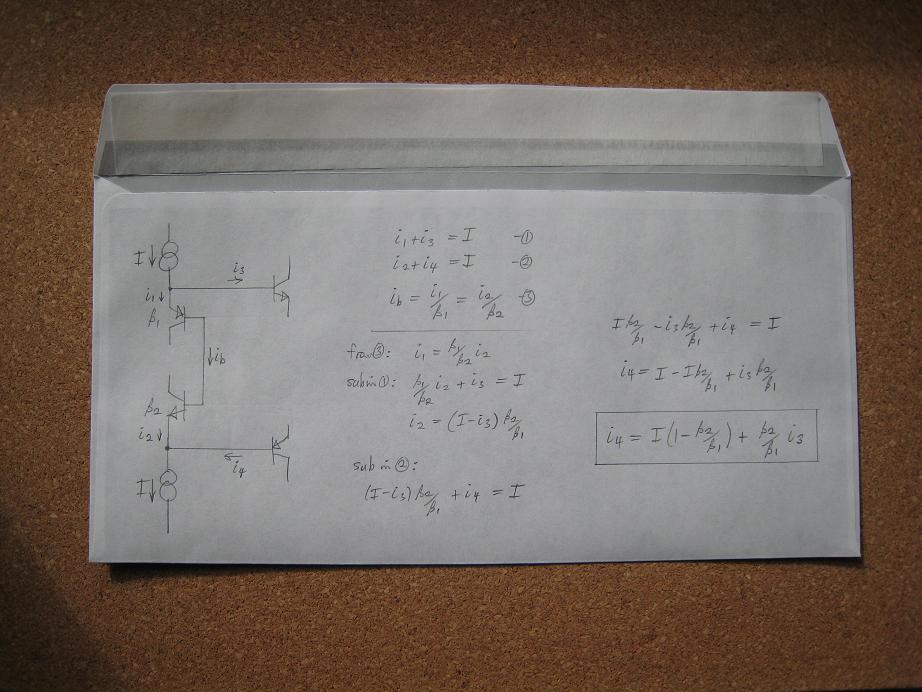 I↓
i₃
i₁↓
β₁
↓i_b
β₂
i₂↓
i₄
I↓
i₁+i₃ = I -①
i₂+i₄ = I -②
i_b = i₁/β₁ = i₂/β₂ -③
from③: i₁ = β₁/β₂ i₂
sub in①: β₁/β₂ i₂ + i₃ = I
i₂ = (I-i₃) β₂/β₁
sub in②:
(I-i₃) β₂/β₁ + i₄ = I
I β₂/β₁ - i₃ β₂/β₁ + i₄ = I
i₄ = I - I β₂/β₁ + i₃ β₂/β₁
i₄ = I(1-β₂/β₁) + β₂/β₁ i₃